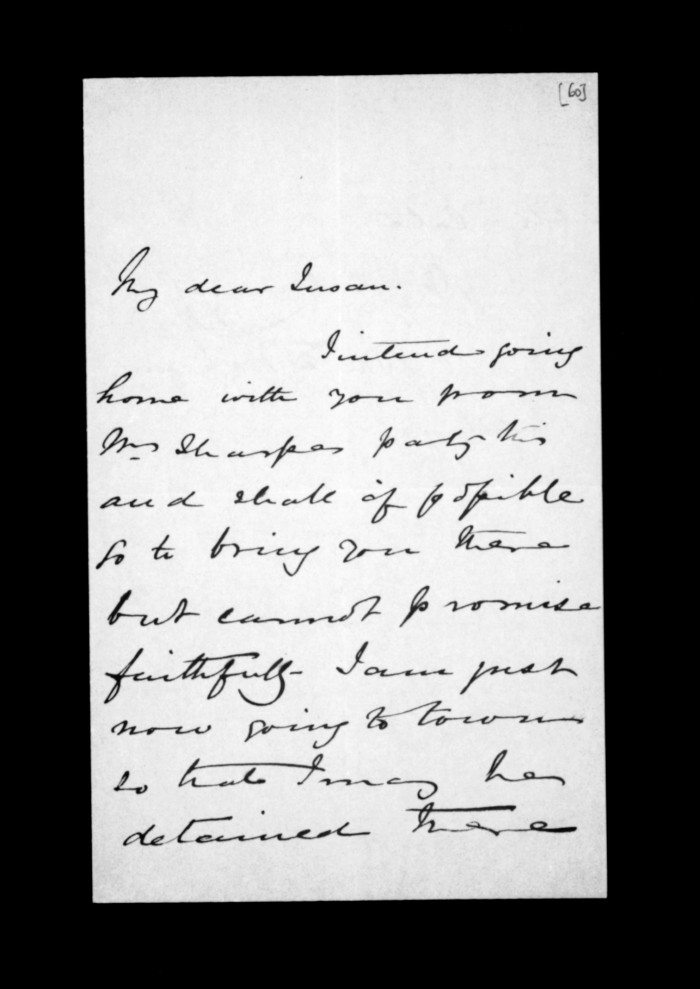 [60]
My dear Susan.
I intend going
home with you from
Mrs Sharpes party
and shall if possible
go to bring you there
but cannot promise
faithfully - I am just
now going to town
so that I may be
detained there